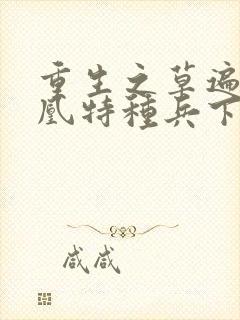 重生之草遍
凰特種兵下
咸咸